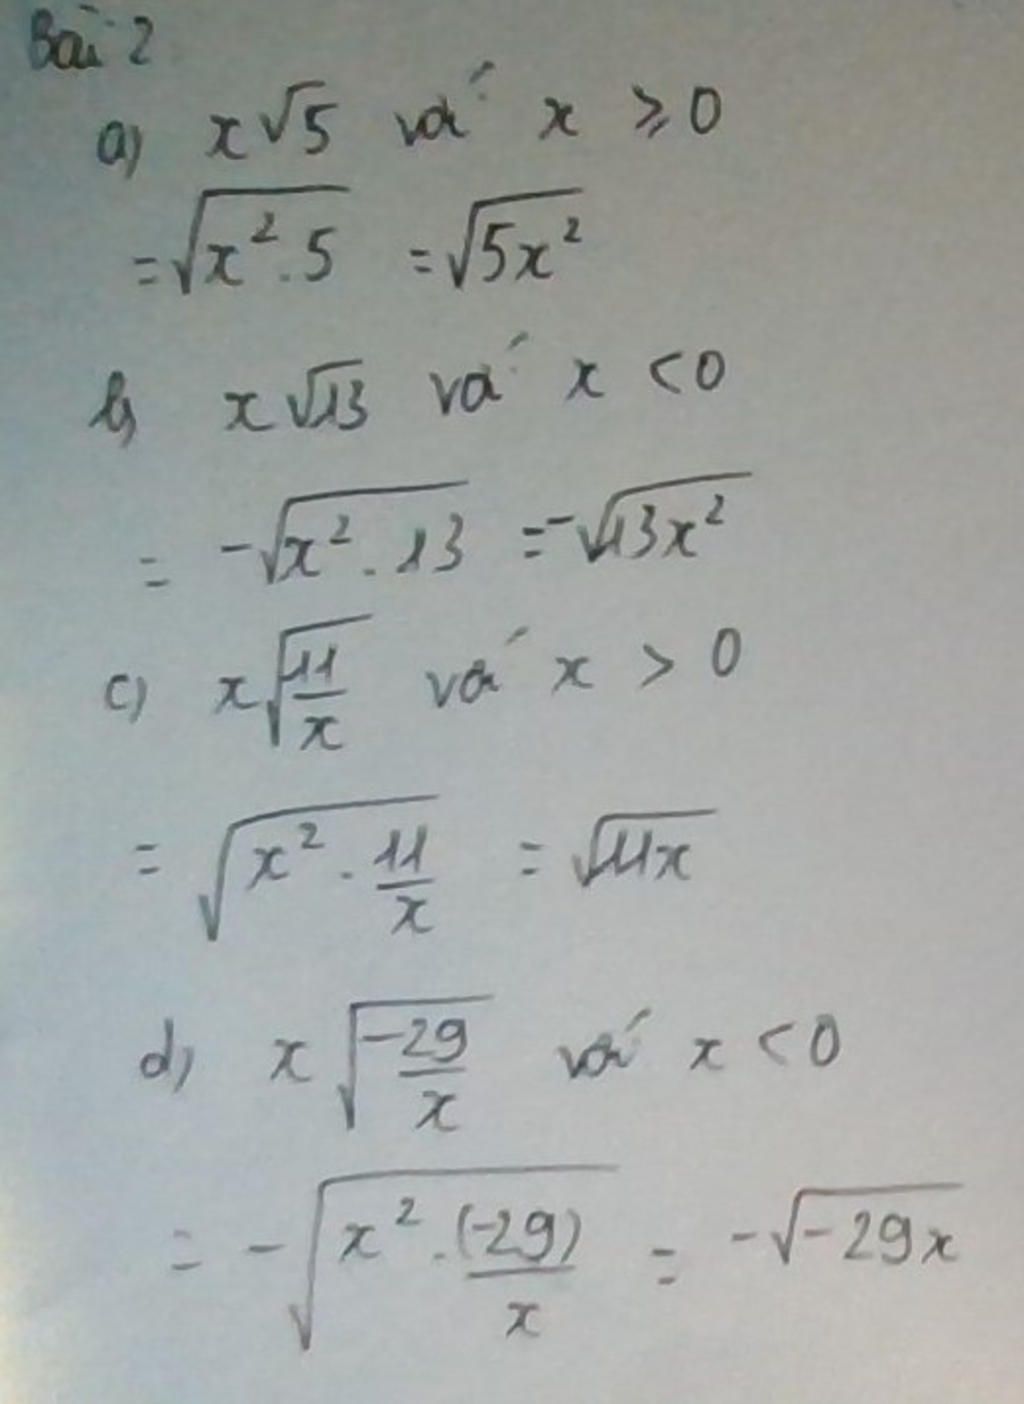 Bài 2
a) x√5 với x ⩾ 0
= √(x² . 5) = √(5x²)
b) x√13 với x < 0
= -√(x² . 13) = -√(13x²)
c) x√(11/x) với x > 0
= √(x² . 11/x) = √(11x)
d) x√(-29/x) với x < 0
= -√(x² . (-29)/x) = -√(-29x)